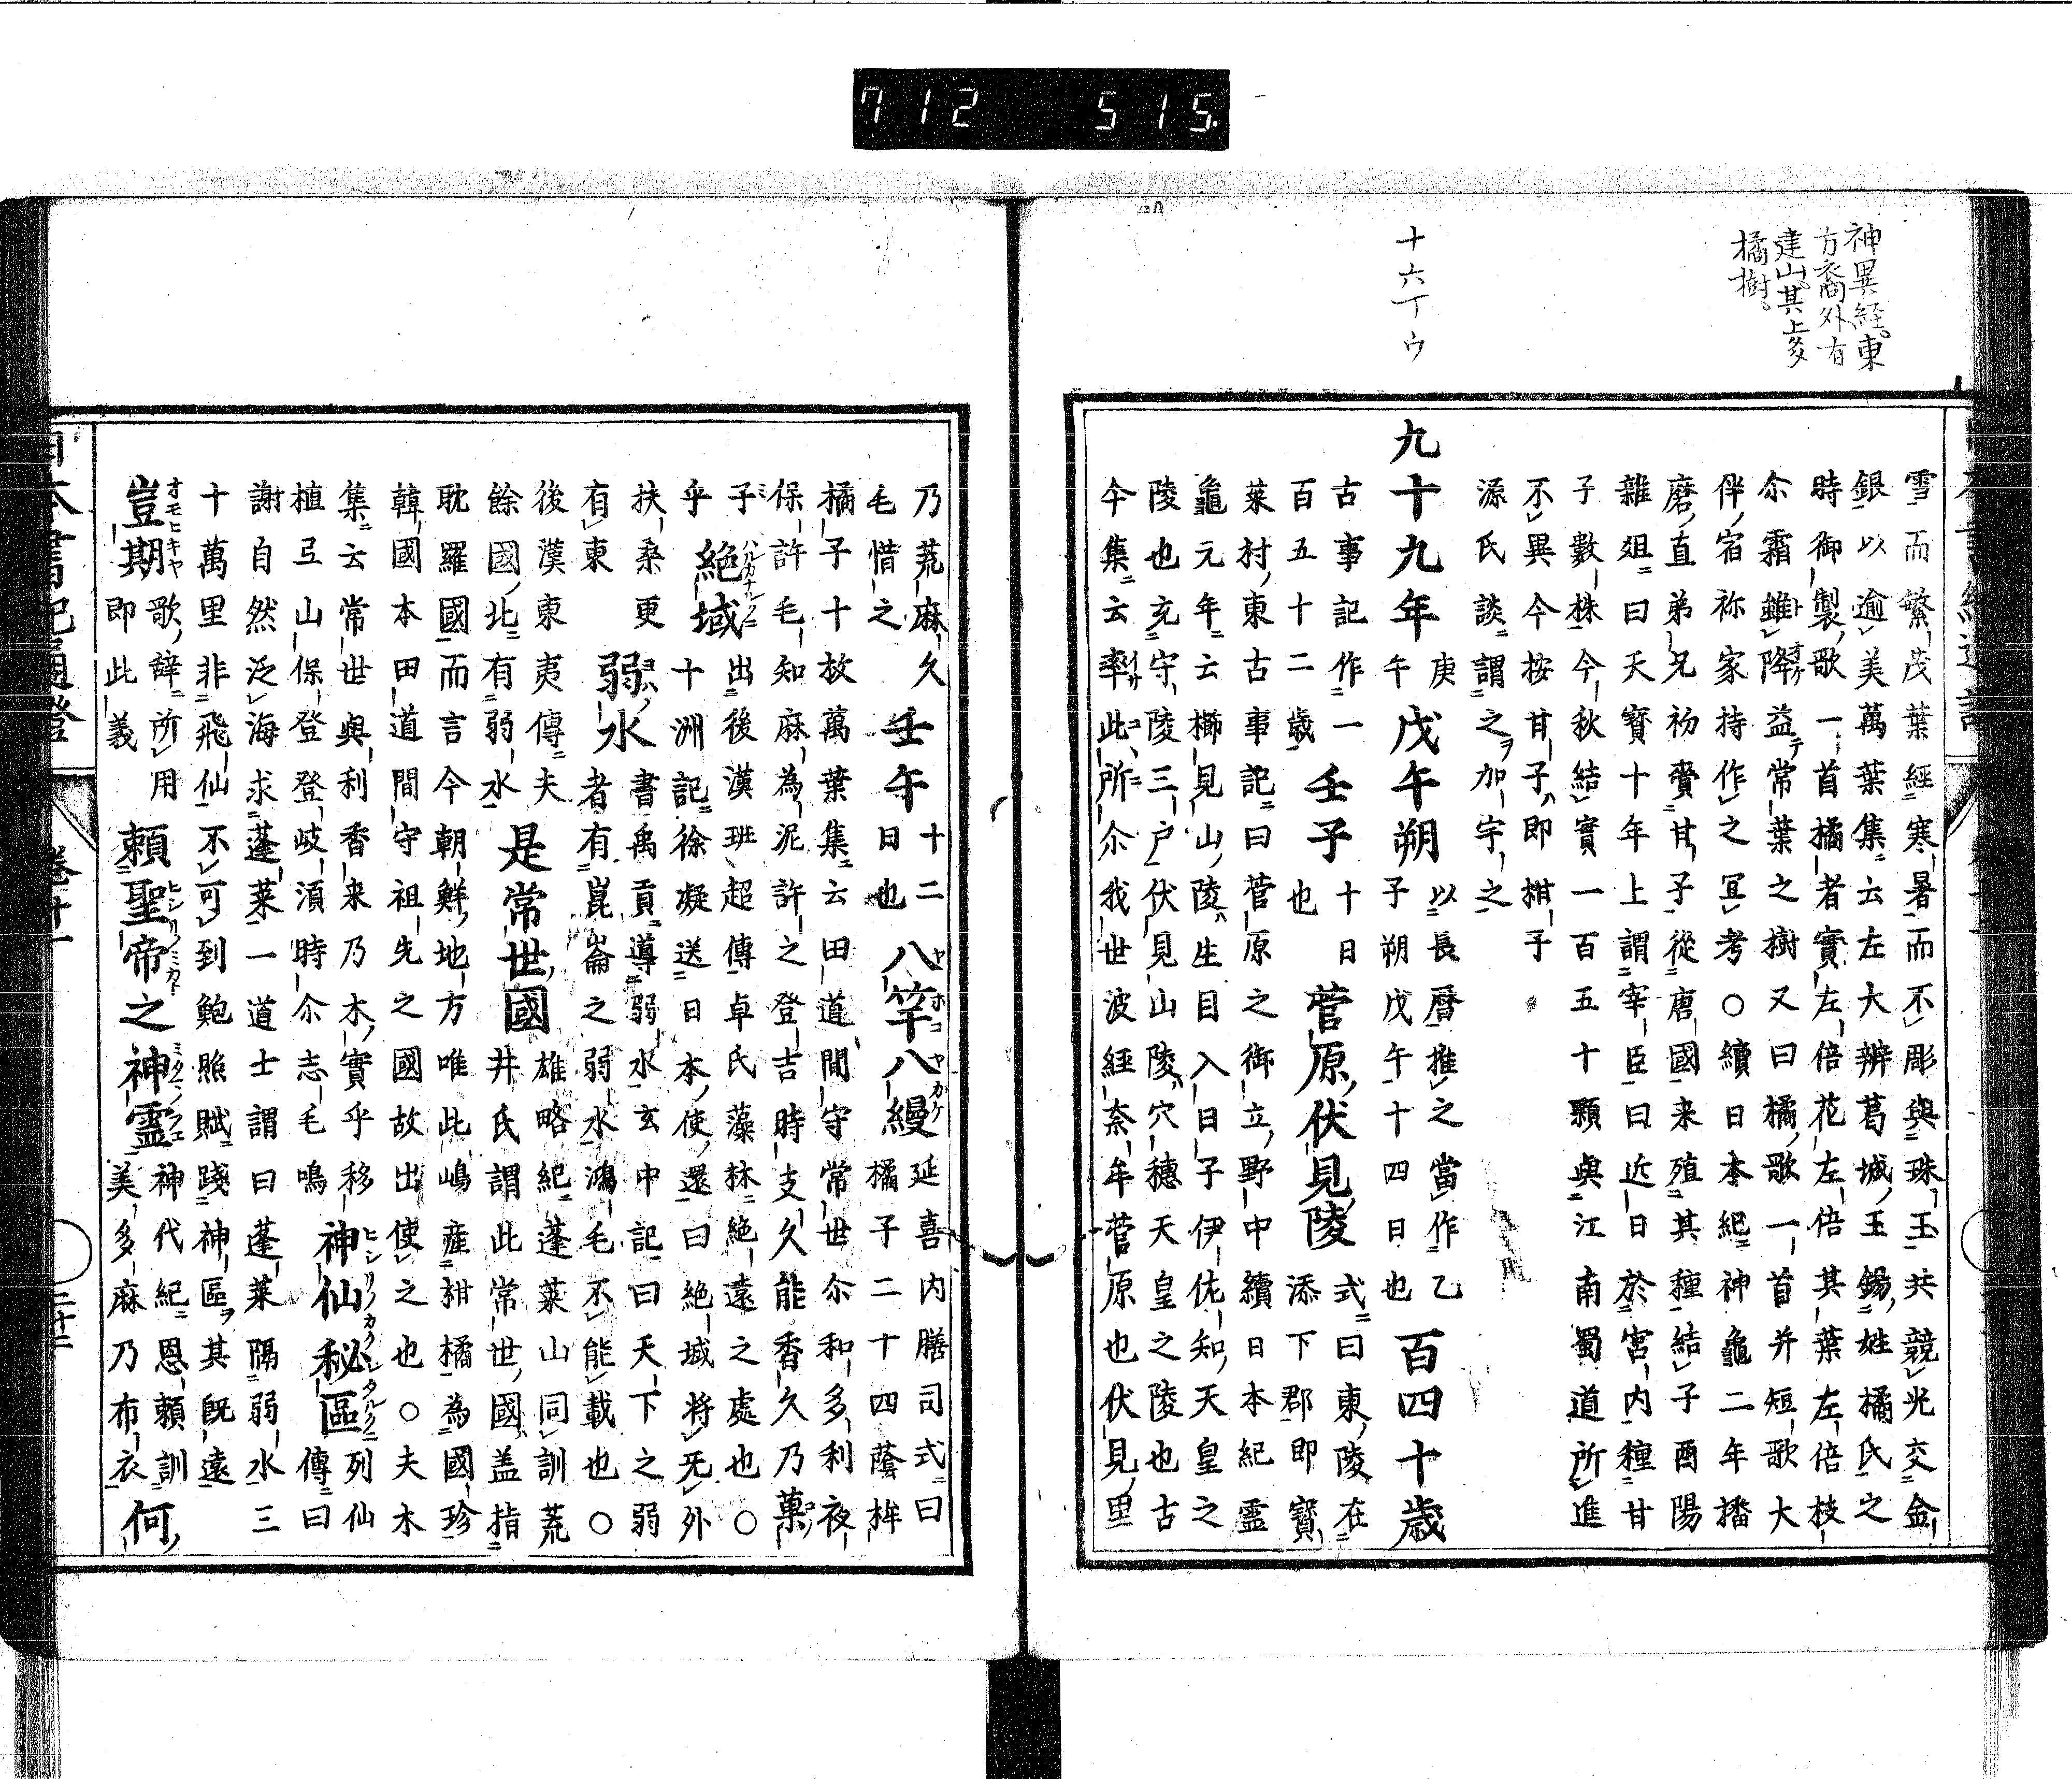 712 515.
神異経東
方裔外有
建山其上多
橘樹
十六丁ウ
雪而繁茂葉経寒暑而不彫與珠玉共競光交金
銀以逾美萬葉集云左大辨葛城玉錫姓橘氏之
時御製歌一首橘者實左倍花左倍其葉左倍枝
尒霜雖降益常葉之樹又曰橘歌一首并短歌大
伴宿祢家持作之冝考○續日本紀神龜二年播
磨直弟兄初賷甘子從唐國来殖其種結子酉陽
雜爼曰天寶十年上謂宰臣曰近日於宮内種甘
子數株今秋結實一百五十顆與江南蜀道所進
不異今按甘子即柑子
源氏談謂之加宇之
九十九年庚午戊午朔以長曆推之當作乙
子朔戊午十四日也百四十歳
古事記作一
百五十二歳壬子十日
也菅原伏見陵式曰東陵在
菜村東古事記曰菅原之御立野中續日本紀靈
添下郡即寶
龜元年云櫛見山陵生目入日子伊佐知天皇之
陵也充守陵三户伏見山陵穴穗天皇之陵也古
今集云率此所尒我世波経奈年菅原也伏見里
乃荒麻久
毛惜之壬午十二
日也八竿八縵延喜内膳司式曰
橘子二十四蔭桙
橘子十放萬葉集云田道間守常世尒和多利夜
保許毛知麻為泥許之登吉時支久能香久乃菓
子
乎絶域出後漢班超傳卓氏藻林絶遠之處也○
十洲記徐凝送日本使還曰絶域將无外
扶桑更
有東弱水書禹貢導弱水玄中記曰天下之弱
者有崑崙之弱水鴻毛不能載也○
後漢東夷傳夫
餘國北有弱水是常世國雄略紀蓬莱山同訓荒
井氏謂此常世國盖指
耽羅國而言今朝鮮地方唯此嶋産柑橘為國珍
韓國本田道間守祖先之國故出使之也○夫木
集云常世與利香来乃木實乎移
植弖山保登登岐湏時尒志毛鳴神仙秘區列仙
傳曰
謝自然泛海求蓬莱一道士謂曰蓬莱隔弱水三
十萬里非飛仙不可到鮑照賦踐神區其旣遠
豈期歌辭所用
即此義頼聖帝之神靈神代紀恩頼訓
美多麻乃布衣何
日本書紀通證
卷十一